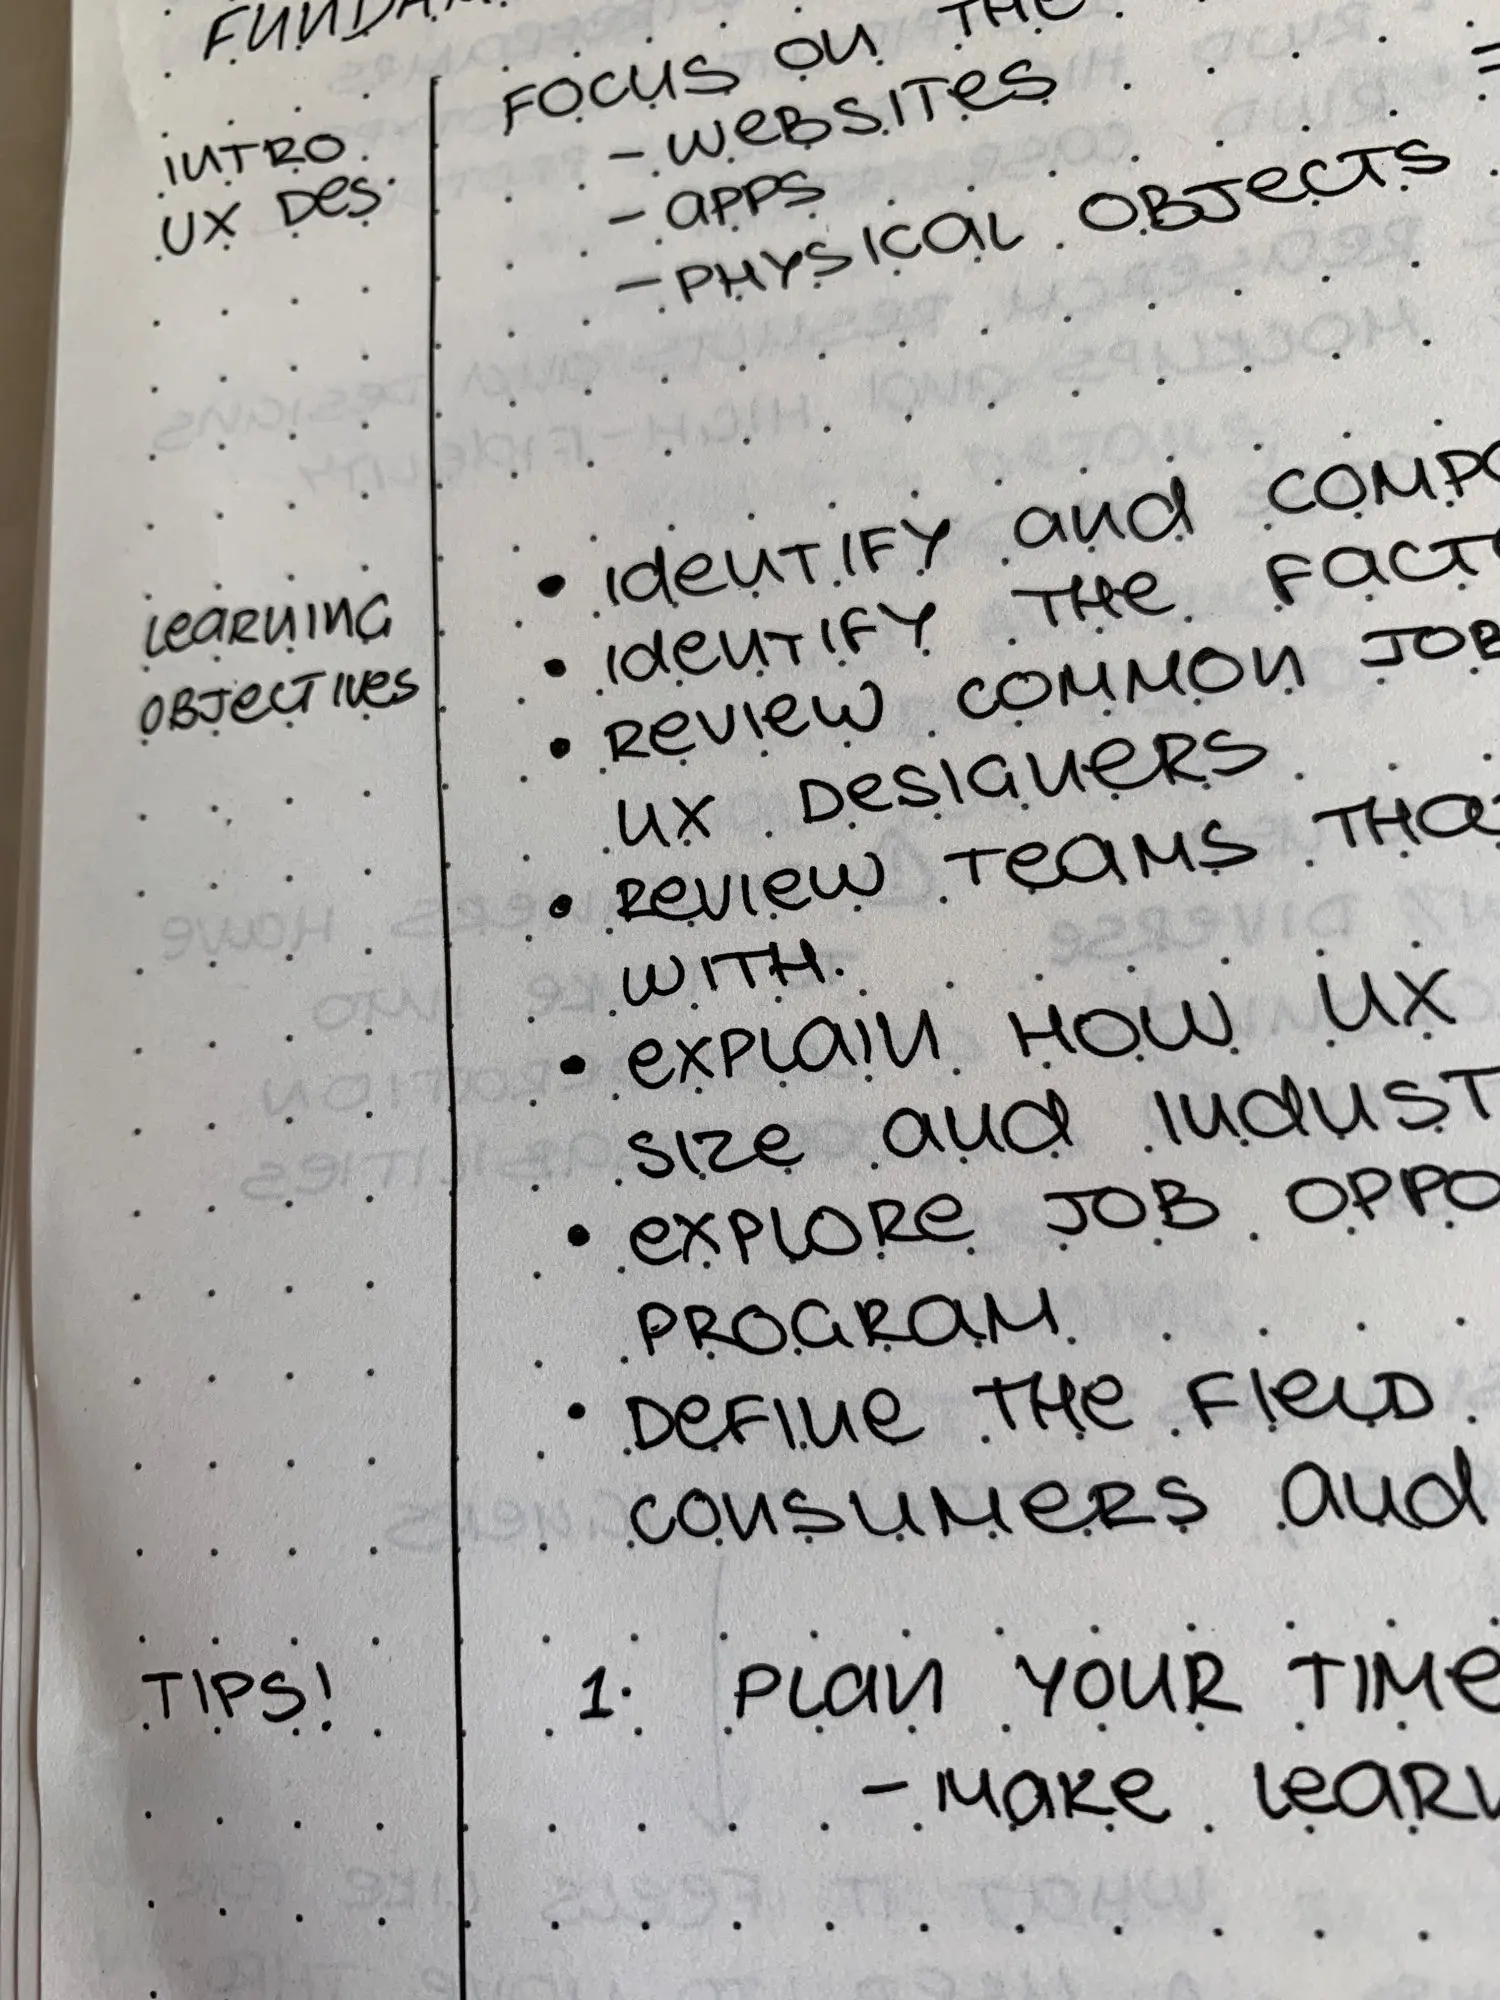 FUNDAM
INTRO
UX DES.
FOCUS ON THE
- WEBSITES
- APPS
- PHYSICAL OBJECTS
LEARNING
OBJECTIVES
• IDENTIFY AND COMPO
• IDENTIFY THE FACT
• REVIEW COMMON JOB
UX DESIGNERS
• REVIEW TEAMS THA
WITH.
• EXPLAIN HOW UX
SIZE AND INDUST
• EXPLORE JOB OPPO
PROGRAM
• DEFINE THE FIELD
CONSUMERS AND
TIPS!
1. PLAN YOUR TIME
- MAKE LEARN